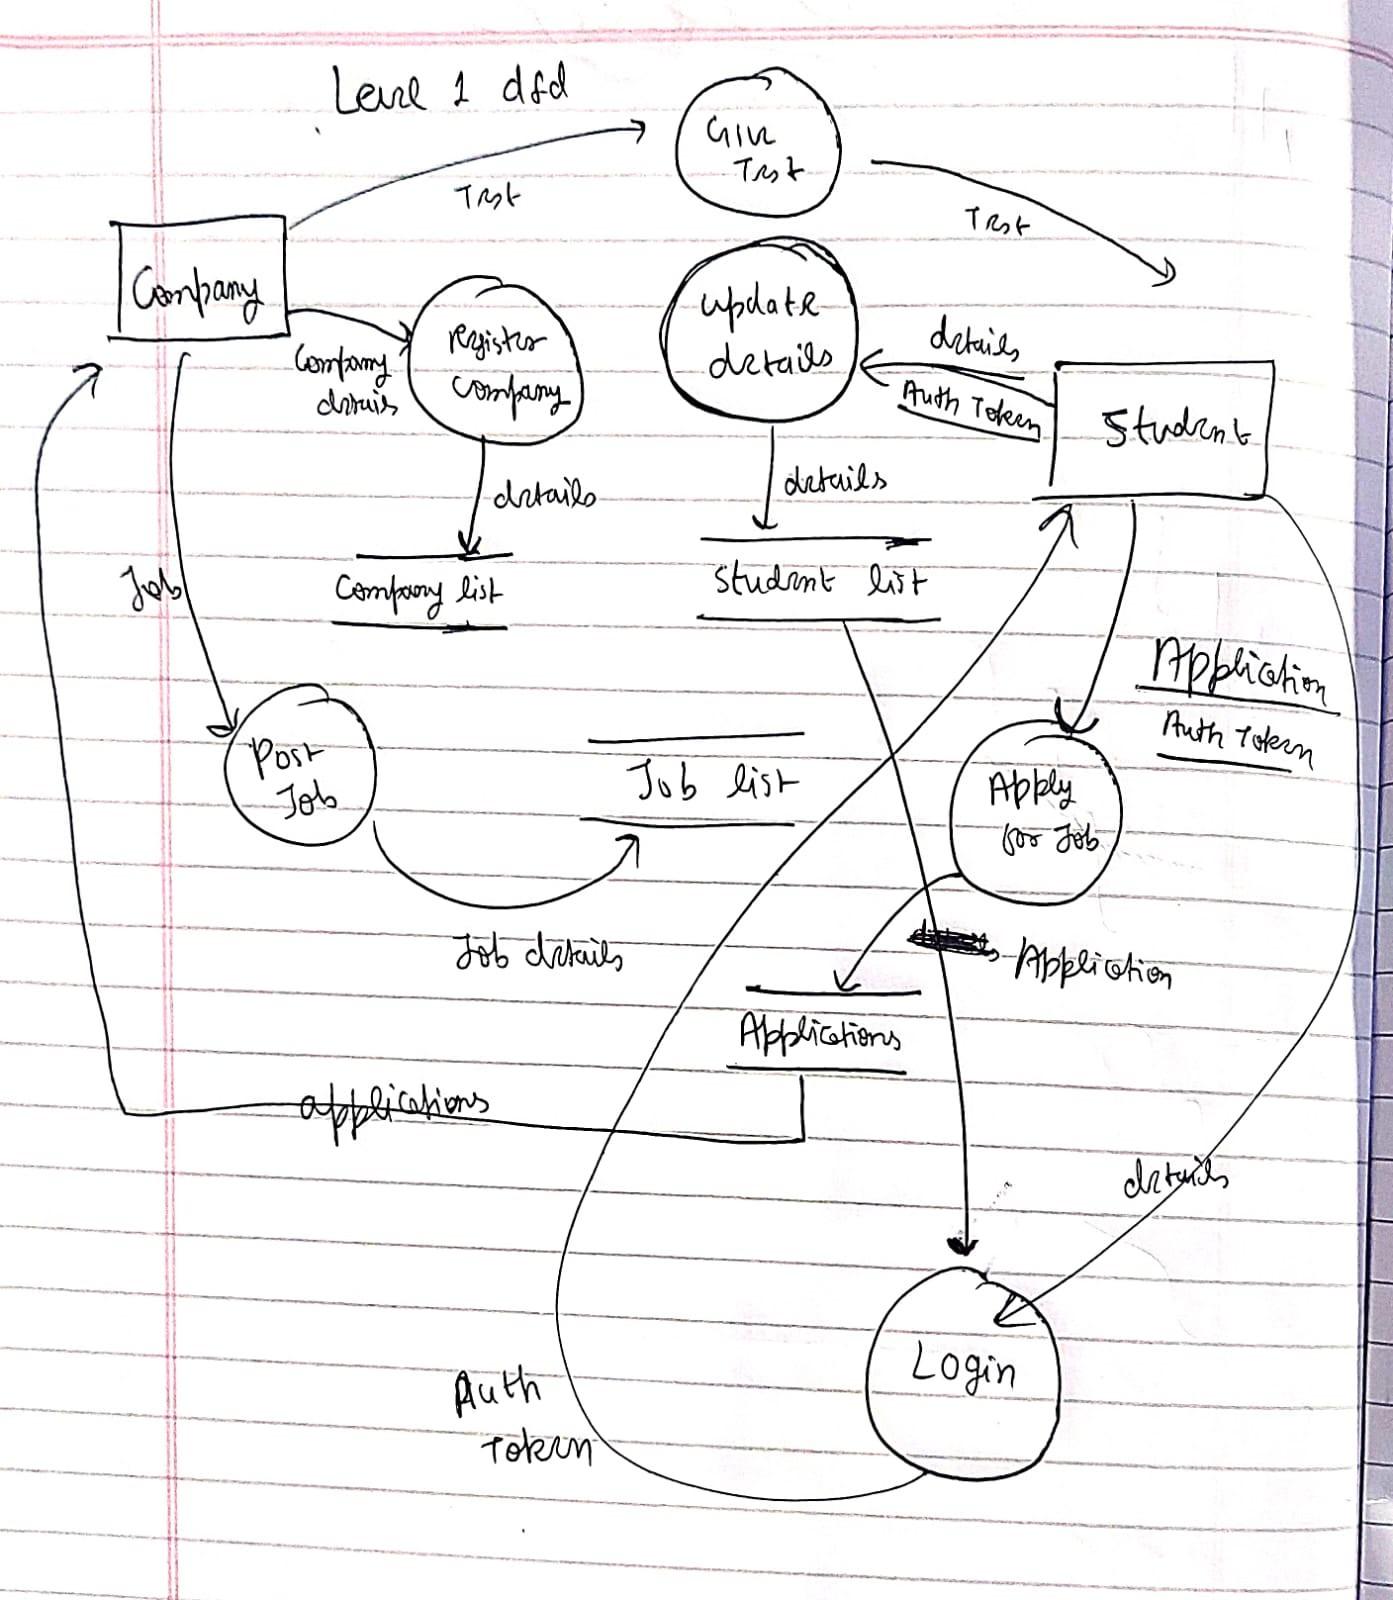 Level 1 dfd
Give
Test
Test
Test
Company
Company
details
register
company
update
details
details
Auth Token
Student
details
details
Company list
Student list
Job
Application
Auth Token
Post
Job
Job list
Apply
for Job
Job details
Application
Applications
applications
details
Login
Auth
Token